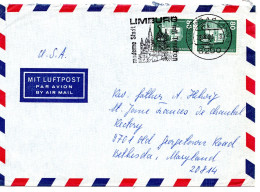 LIMBURG
moderne Stadt
U.S.A.
MIT LUFTPOST
PAR AVION
BY AIR MAIL
Rev. Father A.
St. Jane Frances de Chantal
Rectory
8701 Old Georgetown Road
Bethesda, Maryland
20814